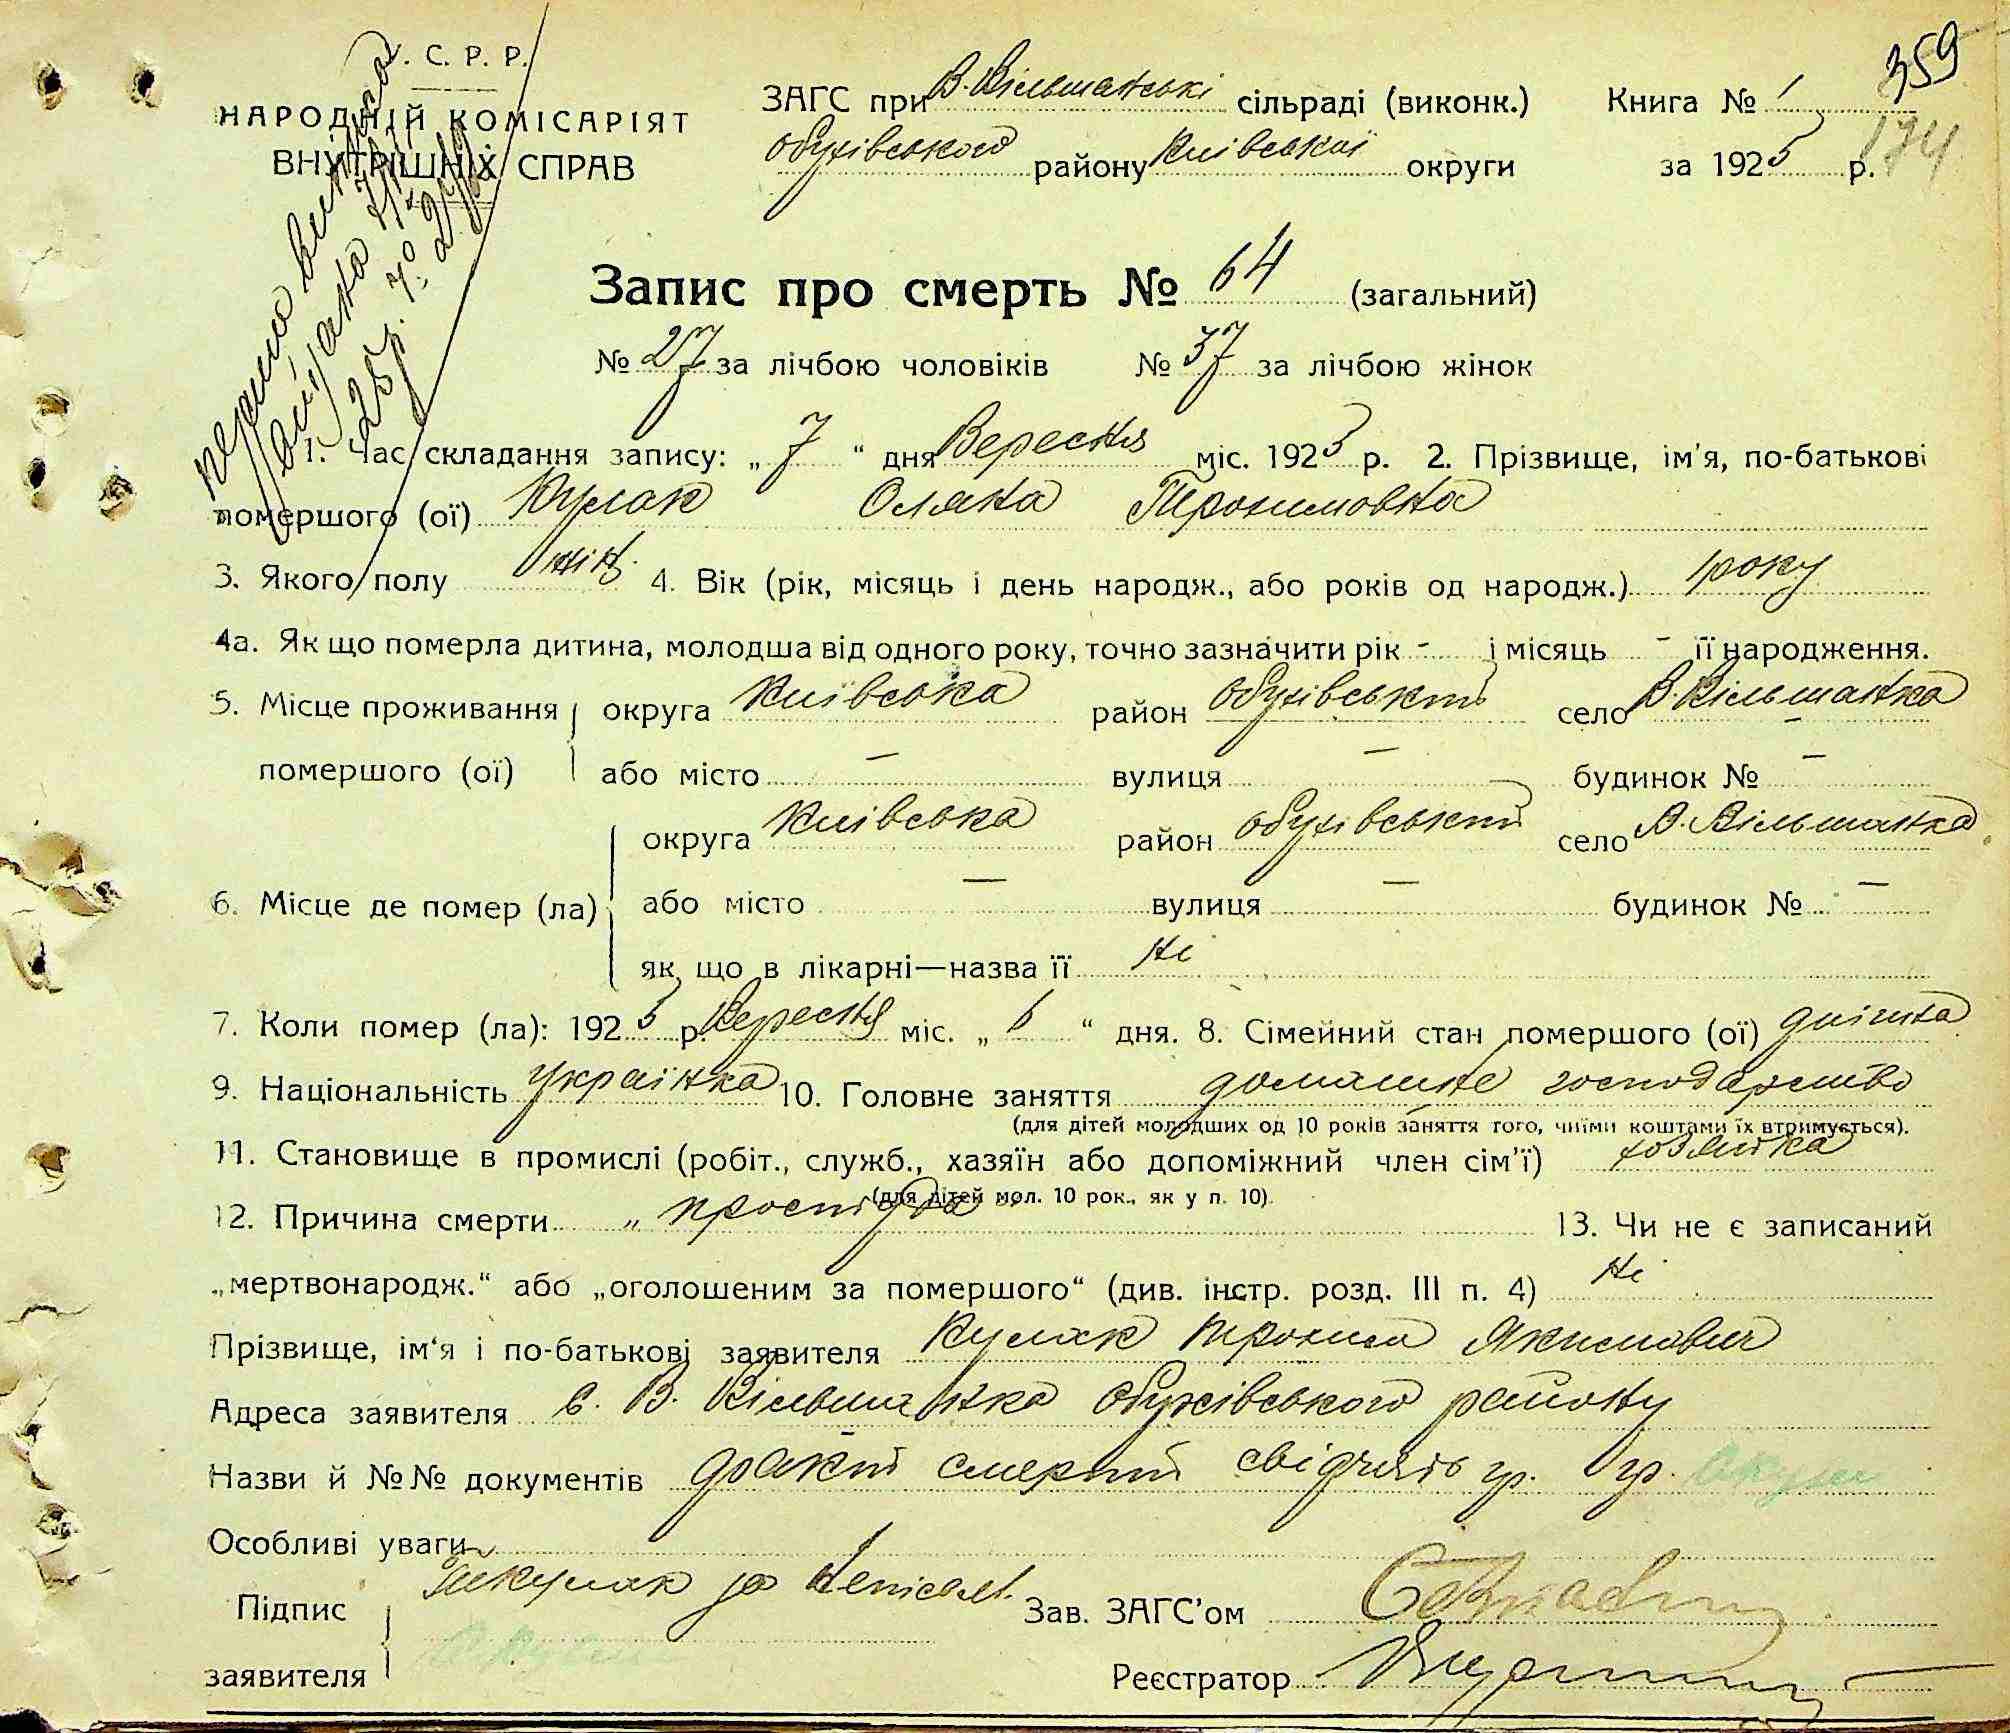 . С. Р. Р.
НАРОДНІЙ КОМІСАРІЯТ
ВНУТРІШНІХ СПРАВ
ЗАГС при В. Вільшанські сільраді (виконк.)
обухівського району Київської округи
Книга № 1
359
за 1925 р.
174
Запис про смерть № 64 (загальний)
№ 27 за лічбою чоловіків № 37 за лічбою жінок
1. Час складання запису: „ 7 “ дня Вересня міс. 1925 р. 2. Прізвище, ім'я, по-батькові
помершого (ої) Кулак Оляна Трохимовна
3. Якого полу жін. 4. Вік (рік, місяць і день народж., або років од народж.) 1 року
4а. Як що померла дитина, молодша від одного року, точно зазначити рік - і місяць - її народження.
5. Місце проживання округа Київська район Обухівський село В. Вільшанка
помершого (ої) або місто — вулиця — будинок № —
округа Київська район обухівський село В. Вільшанка
6. Місце де помер (ла) або місто — вулиця — будинок № —
як що в лікарні—назва її Ні
7. Коли помер (ла): 1925 р. Вересня міс. „ 6 “ дня. 8. Сімейний стан помершого (ої)
9. Національність українка 10. Головне заняття домашнє господарство
(для дітей молодших од 10 років заняття того, чиїми коштами їх втримується).
11. Становище в промислі (робіт., служб., хазяїн або допоміжний член сім'ї) хозяйка
(для дітей мол. 10 рок., як у п. 10).
12. Причина смерти „ простуда “ 13. Чи не є записаний
„мертвонародж.“ або „оголошеним за помершого“ (див. інстр. розд. III п. 4) Ні
Прізвище, ім'я і по-батькові заявителя Кулак Трохим Якимович
Адреса заявителя с. В. Вільшанка Обухівського району
Назви й №№ документів факт смерти свідчать гр. гр.
Особливі уваги
Підпис
заявителя
Зав. ЗАГС'ом
Реєстратор